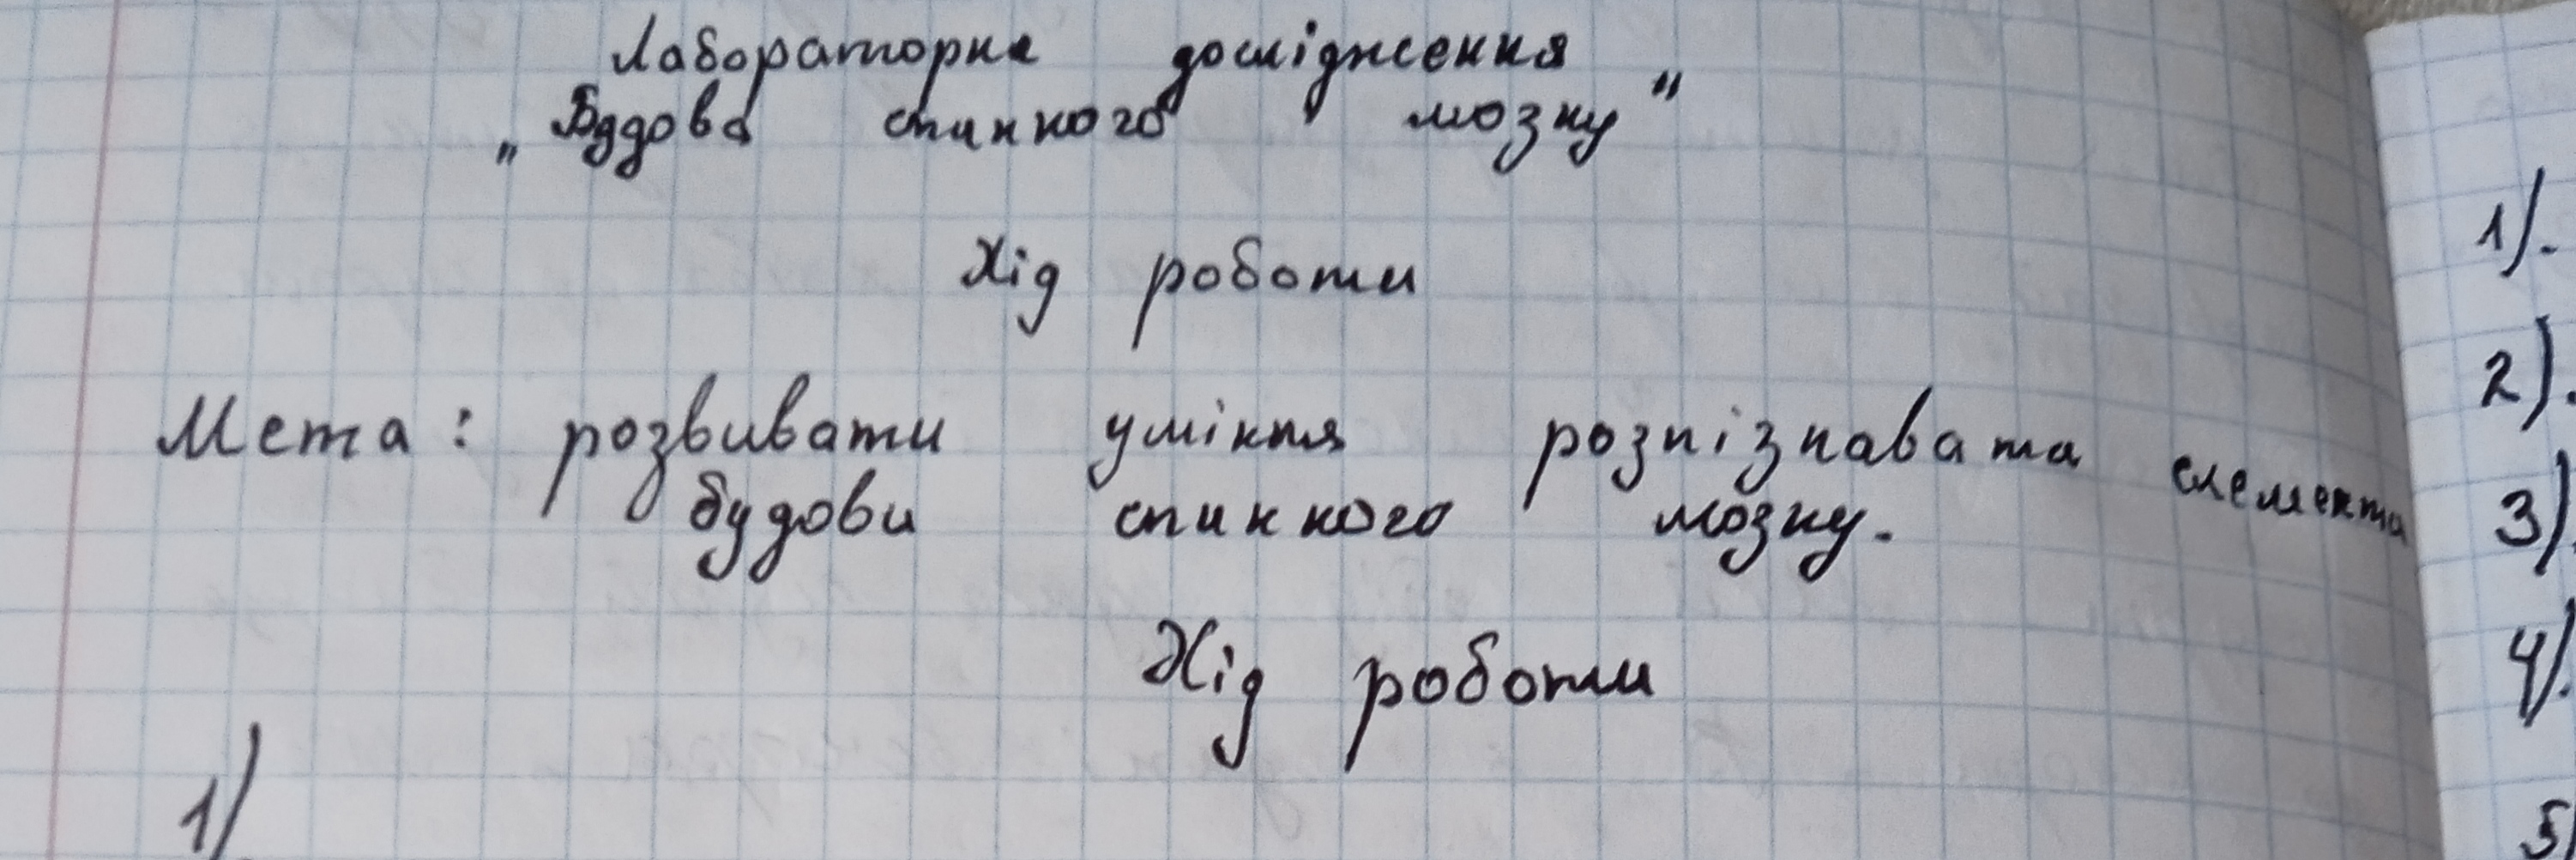 Лабораторне дослідження
„Будова спинного мозку"
Хід роботи
Мета: розвивати уміння розпізнавати елементи
будови спинного мозку.
Хід роботи
1)
1).
2).
3).
4).
5)